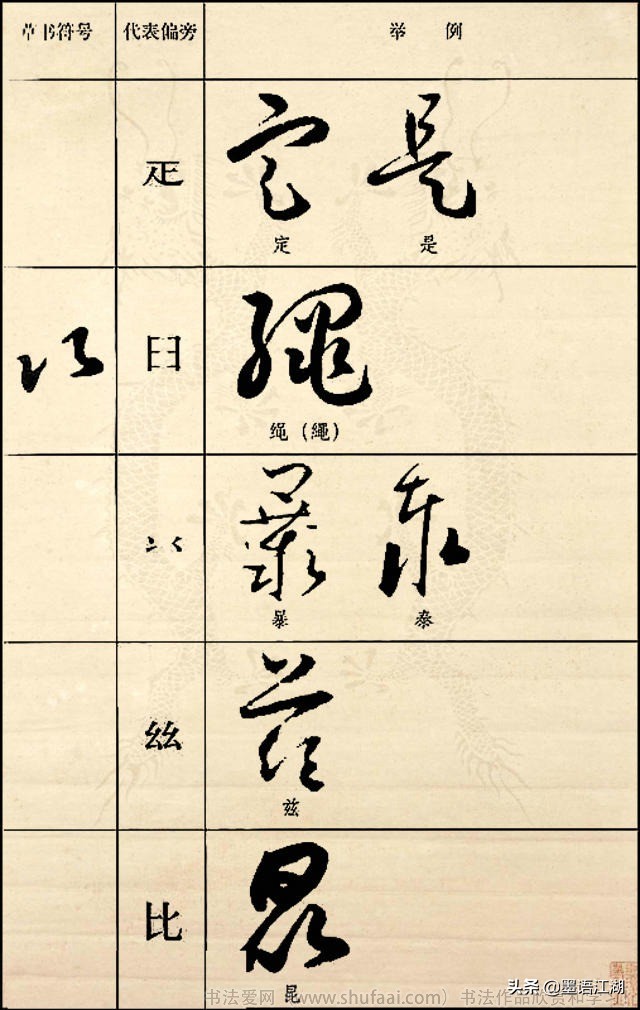 草书符号 代表偏旁 举 例
定 是
定 是
臼 繩
绳(繩)
暴 泰
暴 泰
兹
兹
比 昆
昆
书法爱网(www.shufaai.com)书法作品欣赏和学习
头条 @墨语江湖